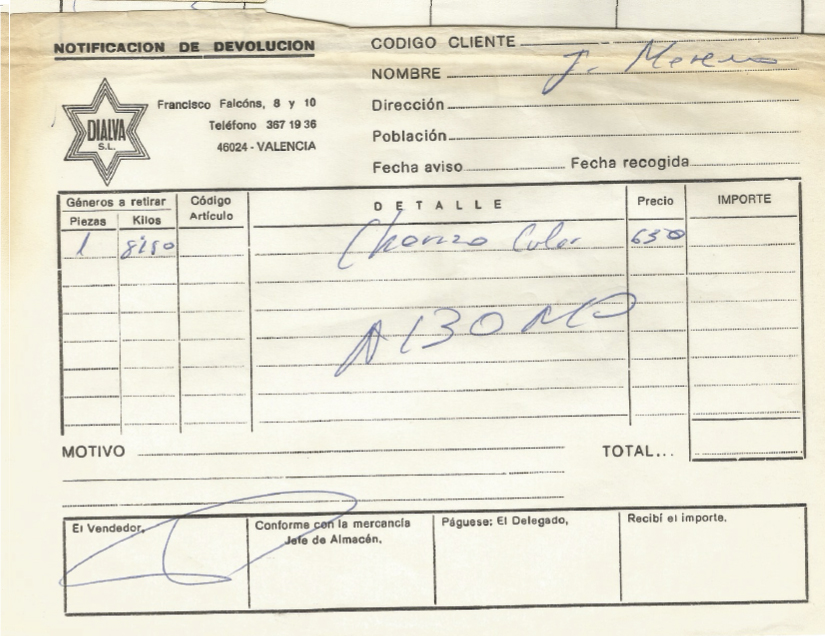 NOTIFICACION DE DEVOLUCION
CODIGO CLIENTE
NOMBRE J. Moreno
Francisco Falcóns, 8 y 10
Teléfono 367 19 36
46024 - VALENCIA
DIALVA
S.L.
Dirección
Población
Fecha aviso Fecha recogida
Géneros a retirar
Piezas Kilos
Código Artículo
DETALLE
Precio
IMPORTE
1 Chorizo Cular 650
ABONADO
MOTIVO
TOTAL...
El Vendedor,
Conforme con la mercancía
Jefe de Almacén,
Páguese: El Delegado,
Recibí el importe.